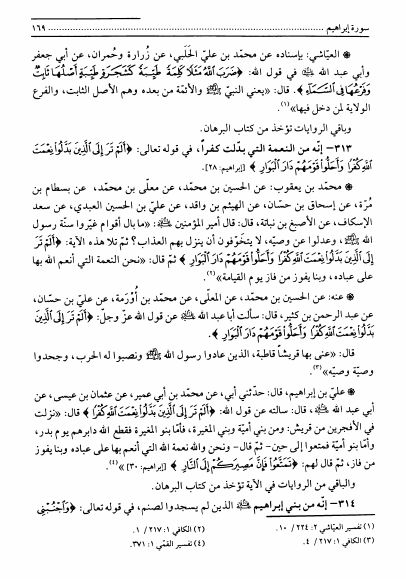 سورة إبراهيم ........ ١٦٩
❀ العيّاشي: بإسناده عن محمّد بن عليّ الحَلَبي، عن زُرارة وحُمران، عن أبي جعفر
وأبي عبد الله ﷺ في قول الله: ﴿ضَرَبَ ٱللَّهُ مَثَلًا كَلِمَةً طَيِّبَةً كَشَجَرَةٍ طَيِّبَةٍ أَصْلُهَا ثَابِتٌ
وَفَرْعُهَا فِي ٱلسَّمَآءِ﴾. قال: «يعني النبيّ ﷺ والأئمّة من بعده وهم الأصل الثابت، والفرع
الولاية لمن دخل فيها»(١).
وباقي الروايات تؤخذ من كتاب البرهان.
٣١٣– إنّه من النعمة التي بدّلت كفراً، في قوله تعالى: ﴿أَلَمْ تَرَ إِلَى ٱلَّذِينَ بَدَّلُوا۟ نِعْمَتَ
ٱللَّهِ كُفْرًا وَأَحَلُّوا۟ قَوْمَهُمْ دَارَ ٱلْبَوَارِ﴾ [إبراهيم: ٢٨].
❀ محمّد بن يعقوب: عن الحسين بن محمّد، عن معلّى بن محمّد، عن بسطام بن
مُرّة، عن إسحاق بن حسّان، عن الهيثم بن واقد، عن عليّ بن الحسين العبدي، عن سعد
الإسكاف، عن الأصبغ بن نباتة، قال: قال أمير المؤمنين: «ما بال أقوام غيّروا سنّة رسول
الله ﷺ، وعدلوا عن وصيّه، لا يتخوّفون أن ينزل بهم العذاب؟ ثمّ تلا هذه الآية: ﴿أَلَمْ تَرَ
إِلَى ٱلَّذِينَ بَدَّلُوا۟ نِعْمَتَ ٱللَّهِ كُفْرًا وَأَحَلُّوا۟ قَوْمَهُمْ دَارَ ٱلْبَوَارِ﴾ ثمّ قال: «نحن النعمة التي أنعم الله بها
على عباده، وبنا يفوز من فاز يوم القيامة»(٢).
❀ عنه: عن الحسين بن محمّد، عن المعلّى، عن محمّد بن أُورَمة، عن عليّ بن حسّان،
عن عبد الرحمن بن كثير، قال: سألت أبا عبد الله عن قول الله عزّ وجلّ: ﴿أَلَمْ تَرَ إِلَى ٱلَّذِينَ
بَدَّلُوا۟ نِعْمَتَ ٱللَّهِ كُفْرًا وَأَحَلُّوا۟ قَوْمَهُمْ دَارَ ٱلْبَوَارِ﴾.
قال: «عنى بها قريشاً قاطبة، الذين عادوا رسول الله ﷺ ونصبوا له الحرب، وجحدوا
وصيّة وصيّه»(٣).
❀ عليّ بن إبراهيم، قال: حدّثني أبي، عن محمّد بن أبي عمير، عن عثمان بن عيسى، عن
أبي عبد الله، قال: سألته عن قول الله: ﴿أَلَمْ تَرَ إِلَى ٱلَّذِينَ بَدَّلُوا۟ نِعْمَتَ ٱللَّهِ كُفْرًا﴾ قال: «نزلت
في الأفجرين من قريش: ومن بني أميّة وبني المغيرة، فأمّا بنو المغيرة فقطع الله دابرهم يوم بدر،
وأمّا بنو أميّة فمتعوا إلى حين– ثمّ قال– ونحن والله نعمة الله التي أنعم بها على عباده وبنا يفوز
من فاز، ثم قال لهم: ﴿تَمَتَّعُوا۟ فَإِنَّ مَصِيرَكُمْ إِلَى ٱلنَّارِ﴾ [إبراهيم: ٣٠]»(٤).
والباقي من الروايات في الآية تؤخذ من كتاب البرهان.
٣١٤– إنّه من بني إبراهيم الذين لم يسجدوا لصنم، في قوله تعالى: ﴿وَٱجْنُبْنِى
(١) تفسير العيّاشي ٢: ٢٢٤ / ١٠.
(٢) الكافي ١: ٢١٧ / ١.
(٣) الكافي ١: ٢١٧ / ٤.
(٤) تفسير القمّي ١: ٣٧١.